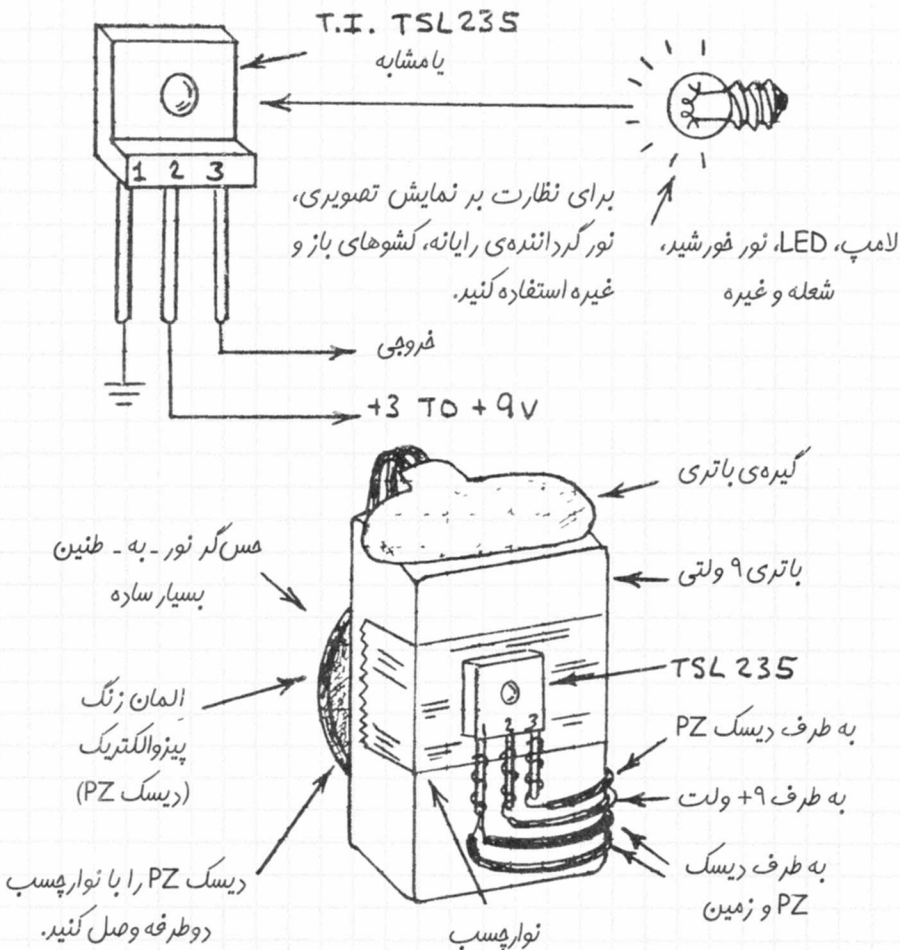 T.I. TSL235
یا مشابه
1 2 3
برای نظارت بر نمایش تصویری،
نور گرداننده‌ی رایانه، کشوهای باز و
غیره استفاده کنید.
لامپ، LED، نور خورشید،
شعله و غیره
خروجی
+3 TO +9V
گیره‌ی باتری
باتری ۹ ولتی
حس‌گر نور ـ به ـ طنین
بسیار ساده
TSL 235
1 2 3
المان زنگ
پیزوالکتریک
(دیسک PZ)
به طرف دیسک PZ
به طرف ۹+ ولت
به طرف دیسک
PZ و زمین
دیسک PZ را با نوارچسب
دوطرفه وصل کنید.
نوارچسب